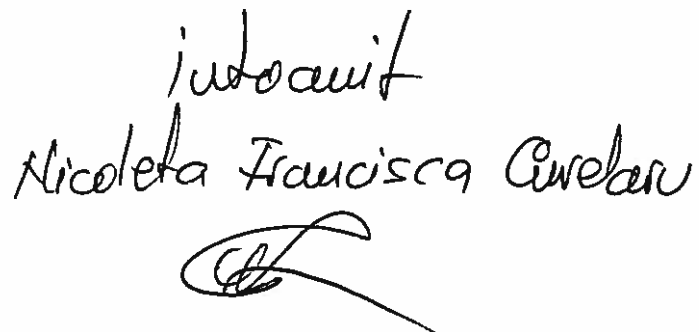 întocmit
Nicoleta Francisca Curelaru